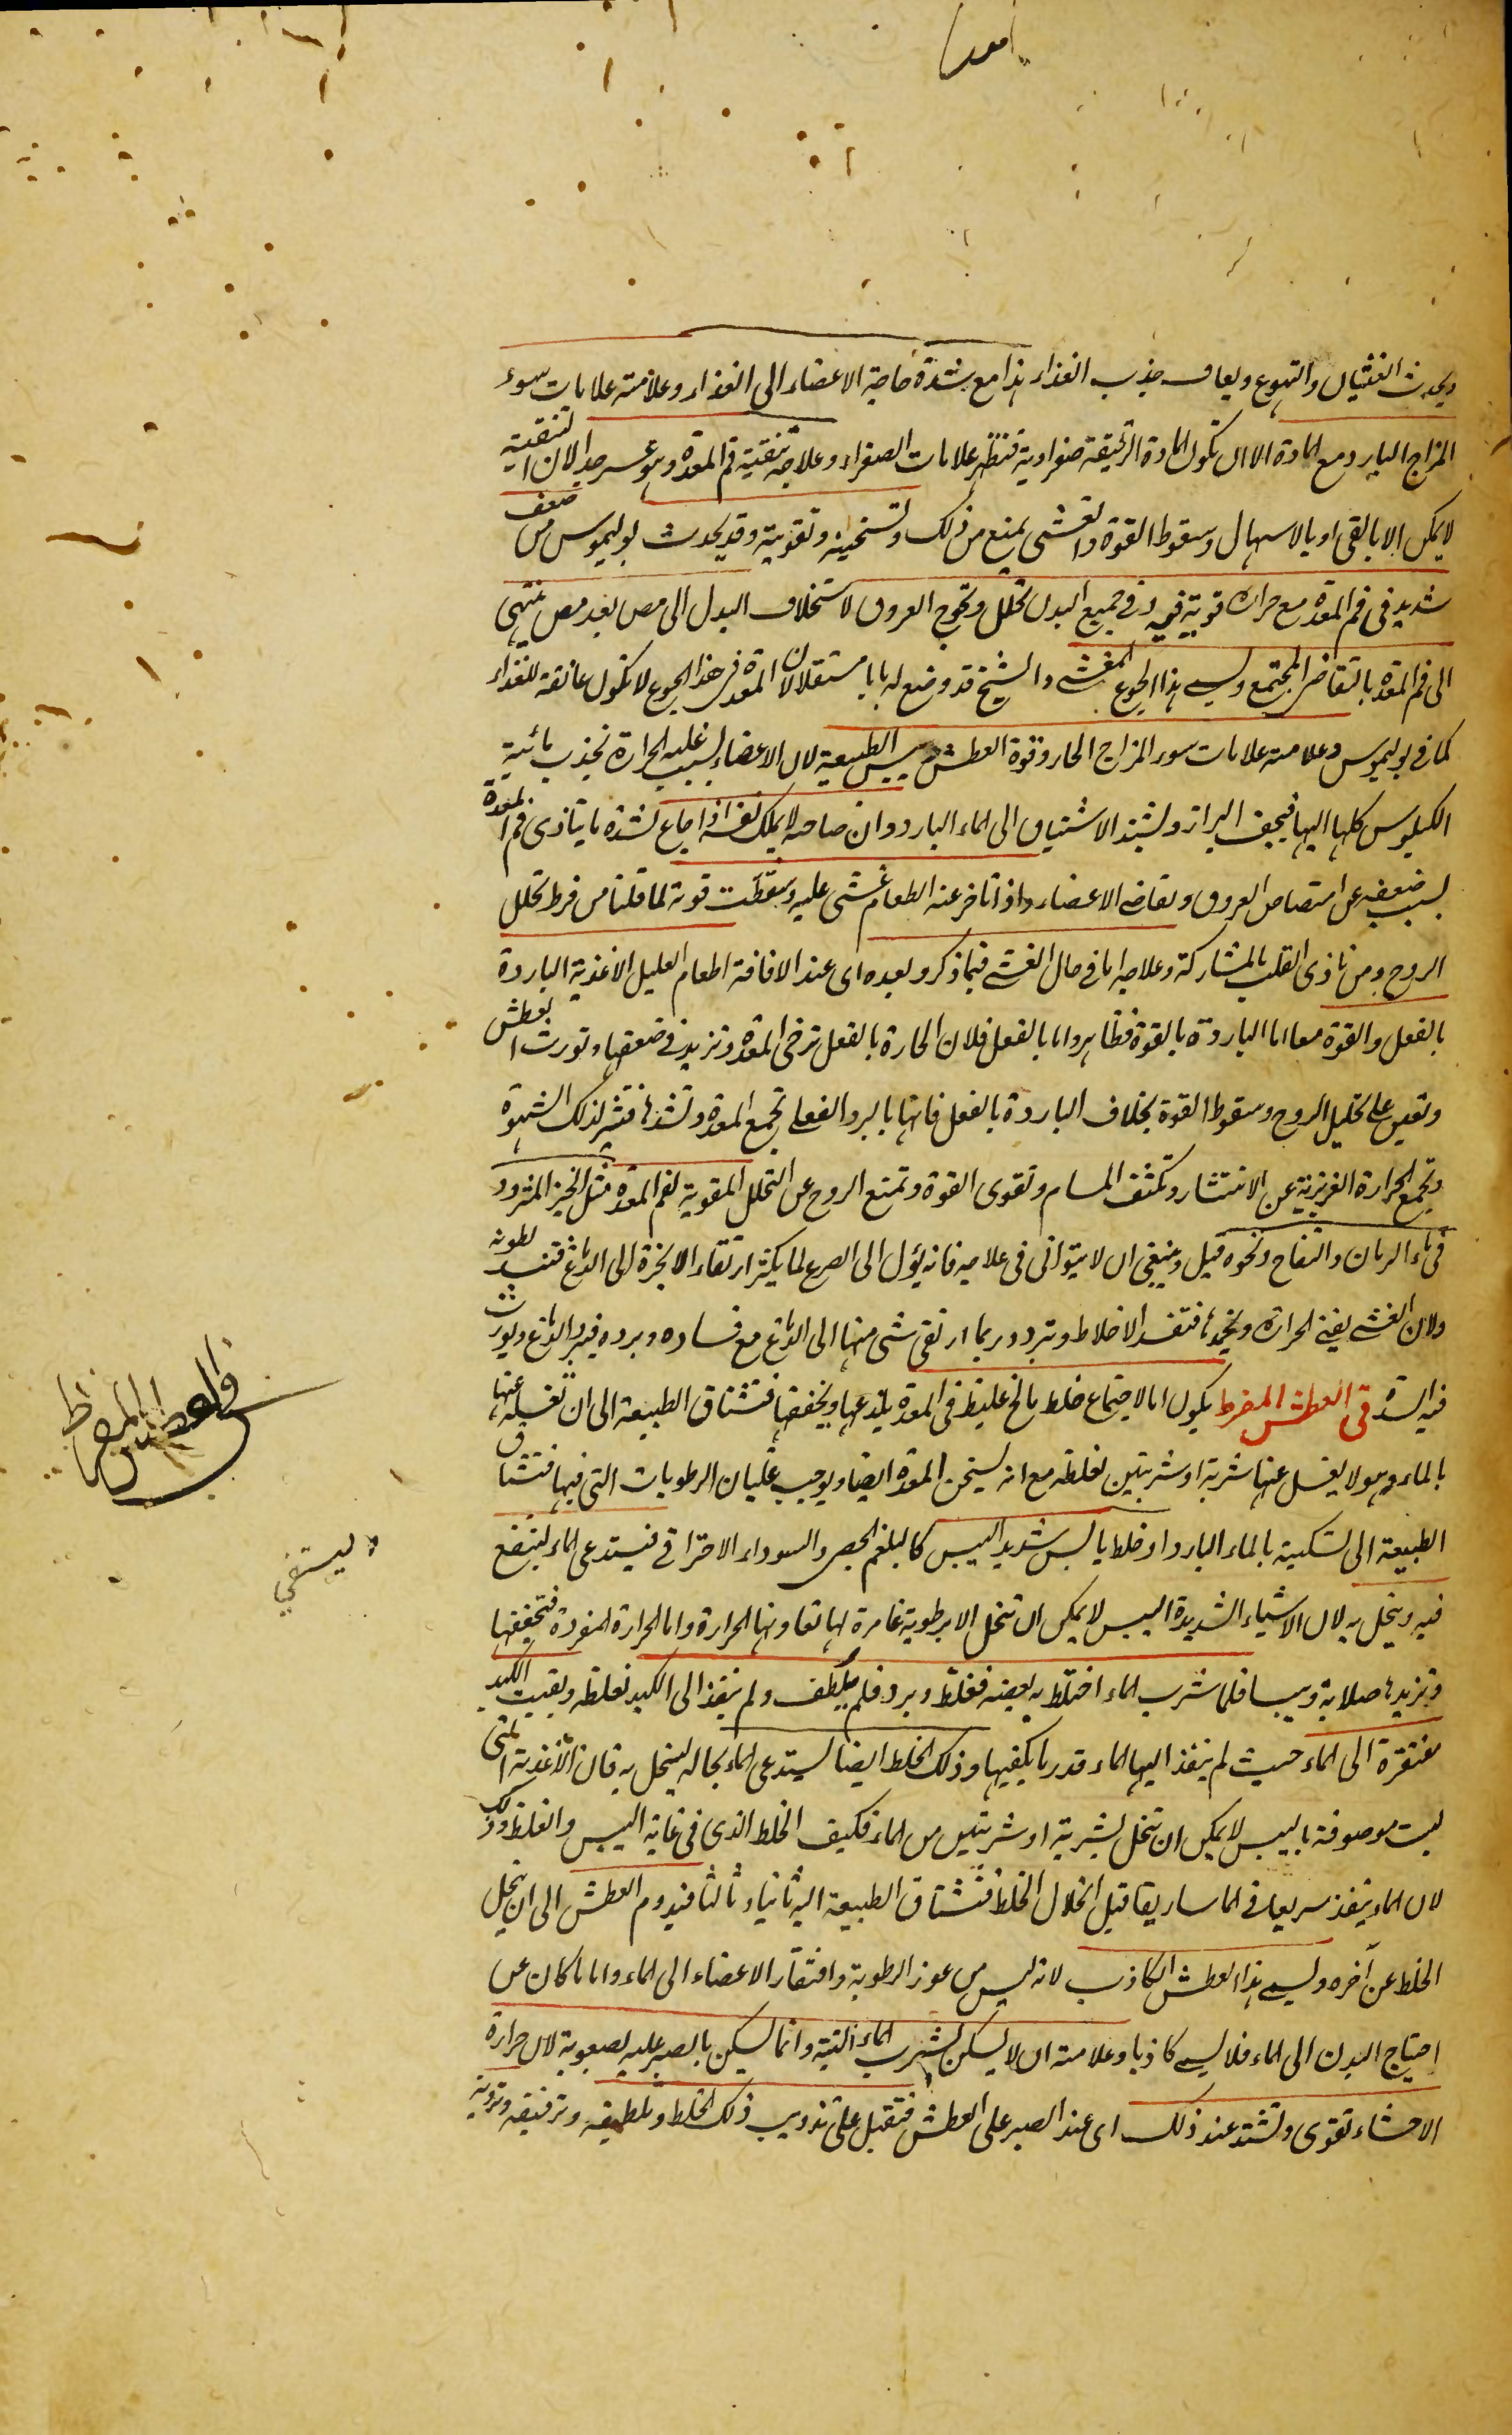 امعد
ويحدث الغثيان والتهوع ويعاف جذب الغذاء هذا مع شدة حاجة الاعضاء الى الغذاء وعلامته علامات سوء
المزاج البارد مع المادة الا ان تكون المادة الرقيقة صفراوية فتظهر علامات الصفراء وعلاجه تنقية فم المعدة وهو عسر جدا لان التنقية
لا يمكن الا بالقى او بالاسهال وسقوط القوة والغشى يمنع من ذلك وتسخينه وتقويته وقد يحدث بوليموس من ضعف
شديد فى فم المعدة مع حرارة قوية فيه وفى جميع البدن تحلل وتحوج العروق لاستخلاف البدل الى مص بعد مص ينتهى
الى فم المعدة بالتقاضى المجتمع ويسمى هذا الجوع المغشى والشيخ قد وضع له بابا مستقلا لان المعدة فى هذا الجوع لا تكون عائفة للغذاء
كما فى بوليموس وعلامته علامات سوء المزاج الحار وقوة العطش ويبس الطبيعة لان الاعضاء بسبب غلبة الحرارة تجذب مائية
الكيلوس كلها اليها فيجف البراز ويشتد الاشتياق الى الماء البارد وان صاحبه لا يملك نفسه اذا جاع لشدة ما يتاذى فم المعدة
بسبب ضعفه عن امتصاص العروق وتقاضى الاعضاء واذا تاخر عنه الطعام غشى عليه وسقطت قوته لما قلنا من فرط تحلل
الروح ومن تاذى القلب بالمشاركة وعلاجه اما فى حال الغشى فيما ذكر وبعده اى عند الافاقة اطعام العليل الاغذية الباردة
بالفعل والقوة معا اما الباردة بالقوة فظاهر واما بالفعل فلان الحارة بالفعل ترخى المعدة وتزيد فى ضعفها وتورث العطش
وتعين على تحليل الروح وسقوط القوة بخلاف الباردة بالفعل فانها بالبرد الفعلى تجمع المعدة وتشدها فتثير لذلك الشهوة
وتجمع الحرارة الغريزية عن الانتشار وتكثف المسام وتقوى القوة وتمنع الروح عن التحلل المقوية لفم المعدة مثل الخبز المثرود
فى ماء الرمان والتفاح ونحوه قيل وينبغى ان لا يتوانى فى علاجه فانه يؤل الى الصرع لما يكثر ارتقاء الابخرة الى الدماغ فتفسد بطونه
ولان الغشى يفنى الحرارة ويخمدها فتفسد الاخلاط وتبرد وربما ارتقى شى منها الى الدماغ مع فساده وبرده فيبرد الدماغ ويورث
فيه السدة فى العطش المفرط يكون اما لاجتماع خلط مالح غليظ فى المعدة يلذعها ويجففها فتشتاق الطبيعة الى ان تغسله عنها
بالماء وهو لا يغسل عنها شربة او شربتين لغلظه مع انه يسخن المعدة ايضا ويوجب غليان الرطوبات التى فيها فتشتاق
الطبيعة الى تسكينه بالماء البارد او خلط يابس شديد اليبس كالبلغم الجصى والسوداء الاحتراقى فيستدعى الماء لينتفع
فيه وينحل به لان الاشياء الشديدة اليبس لا يمكن ان تنحل الا برطوبة غامرة لها تعاونها الحرارة واما الحرارة المفردة فتجففها
وتزيدها صلابة ويبسا فلما شرب الماء اختلط به بعضه فغلظ وبرد فلم يلطف ولم ينفذ الى الكبد لغلظه وبقيت الكبد
مفتقرة الى الماء حيث لم ينفذ اليها الماء قدر ما يكفيها وذلك الخلط ايضا يستدعى الماء بحاله لينحل به فان الاغذية التى
ليست موصوفة باليبس لا يمكن ان تنحل بشربة او شربتين من الماء فكيف الخلط الذى فى غاية اليبس والغلظ وذلك
لان الماء ينفذ سريعا فى الماساريقا قبل انحلال الخلط فتشتاق الطبيعة اليه ثانيا وثالثا فيدوم العطش الى ان ينحل
الخلط عن آخره ويسمى هذا العطش الكاذب لانه ليس من عوز الرطوبة وافتقار الاعضاء الى الماء واما ما كان عن
احتياج البدن الى الماء فلا يسمى كاذبا وعلامته ان لا يسكن بشرب الماء البتة وانما يسكن بالصبر عليه بصعوبة لان حرارة
الاحشاء تقوى وتشتد عند ذلك اى عند الصبر على العطش فتقبل على تذويب ذلك الخلط وتلطيفه وترقيقه وتذويبه
فى العطش المفرط
يستقى